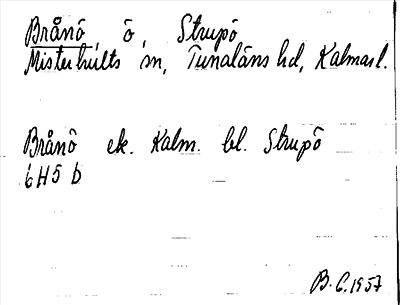 Brånö, ö, Strupö
Misterhults sn, Tunaläns hd, Kalmar l.
Brånö ek. Kalm. bl. Strupö
6H5 b
B. C. 1957